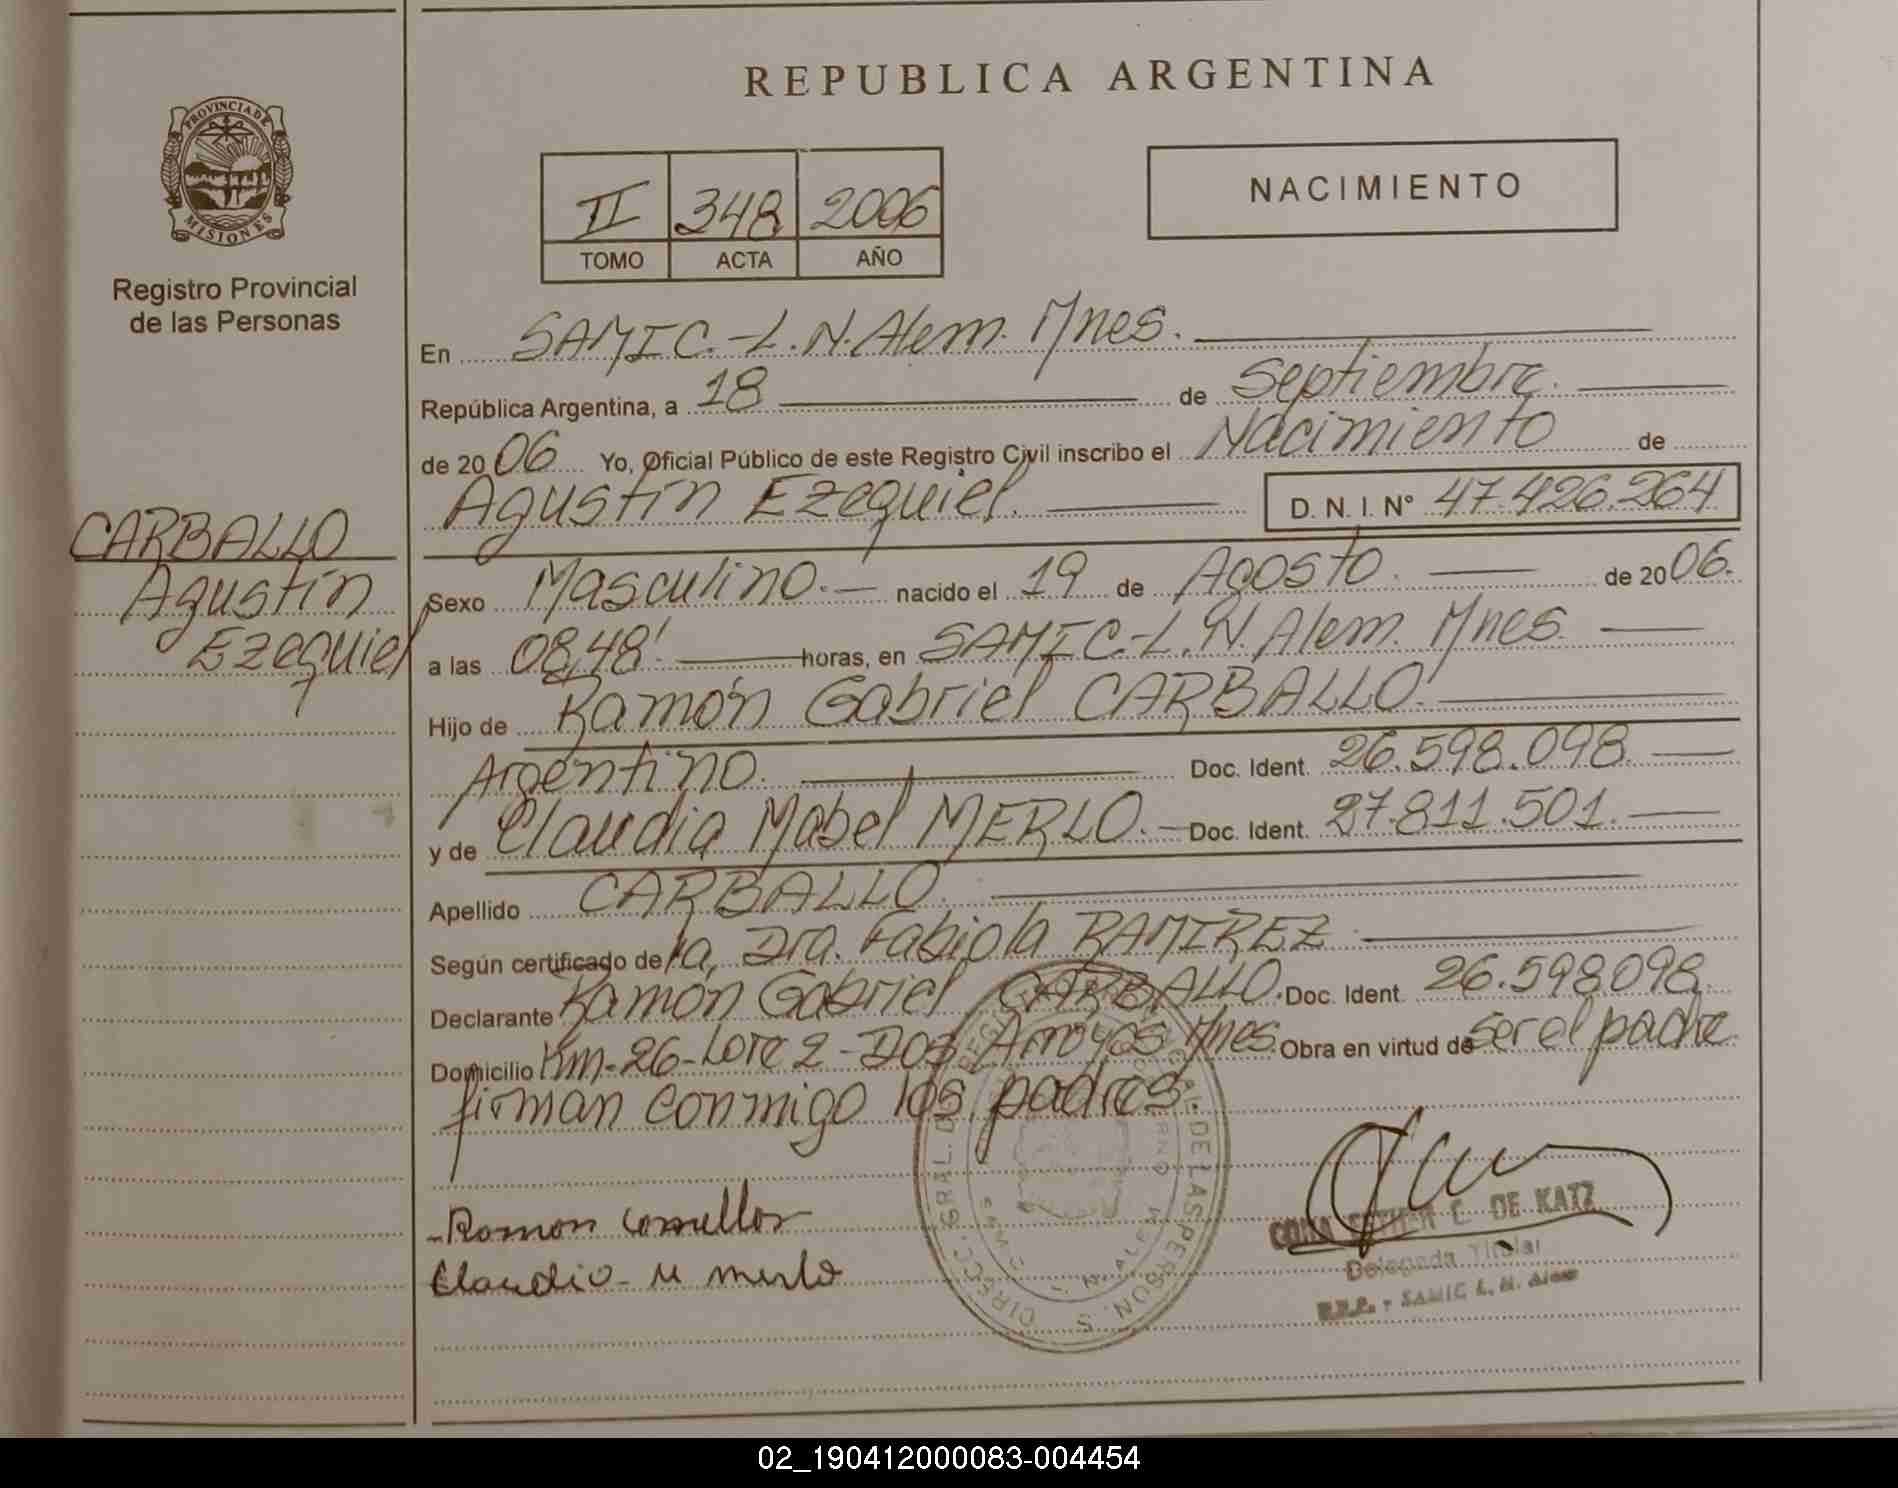 REPUBLICA ARGENTINA
PROVINCIA DE
MISIONES
Registro Provincial
de las Personas
II 348 2006
TOMO ACTA AÑO
NACIMIENTO
En SAMIC.-L.N.Alem. Mnes.
República Argentina, a 18 de Septiembre.
de 2006 Yo, Oficial Público de este Registro Civil inscribo el Nacimiento de
Agustín Ezequiel. D. N. I. N° 47.426.264
CARBALLO
Agustín
Ezequiel
Sexo Masculino.- nacido el 19 de Agosto. de 2006.
a las 08,48'. horas, en SAMIC.-L.N.Alem. Mnes.
Hijo de Ramón Gabriel CARBALLO.
Argentino. Doc. Ident. 26.598.098.
y de Claudia Mabel MERLO.- Doc. Ident. 27.811.501.
Apellido CARBALLO.
Según certificado de la, Dra. Fabiola RAMIREZ
Declarante Ramón Gabriel CARBALLO. Doc. Ident. 26.598.098.
Domicilio Km-26-Lote 2-Dos Arroyos Mnes. Obra en virtud de ser el padre.
firman conmigo los padres.
-Ramon
Claudio- M merlo
DE KATZ
Delegada Titular
SAMIC L. N. Alem
02_190412000083-004454